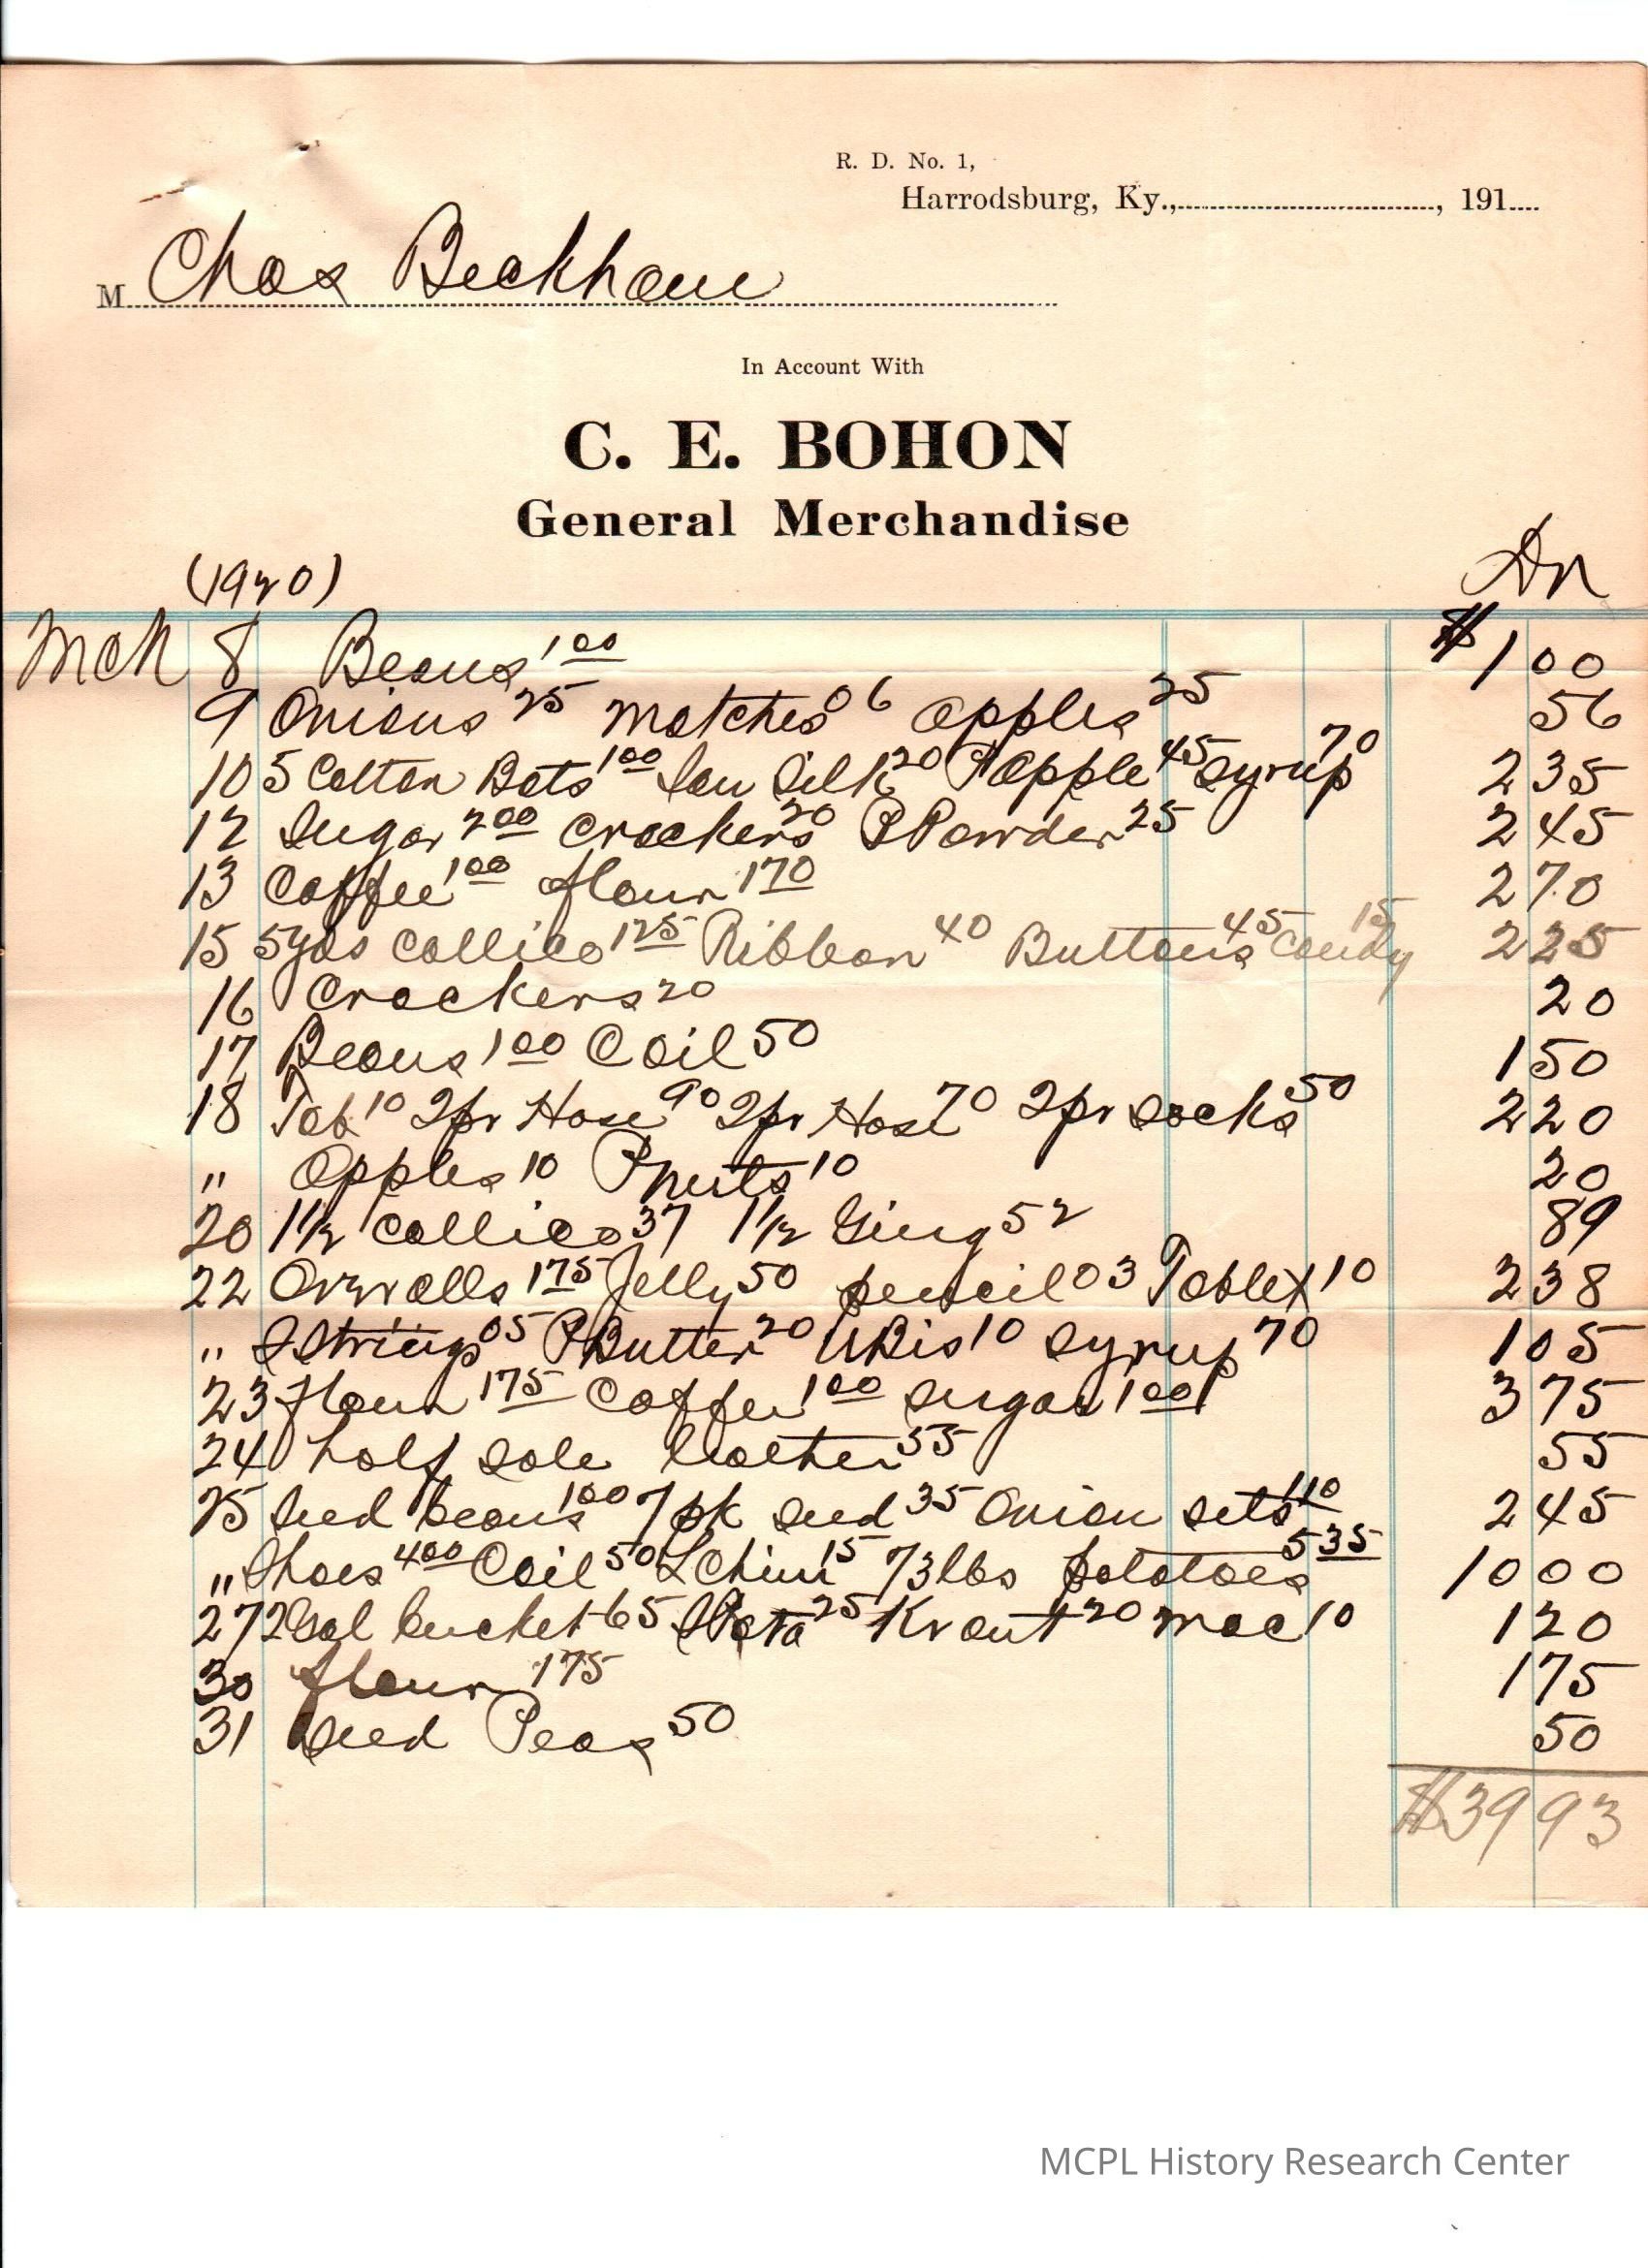 R. D. No. 1,
Harrodsburg, Ky., , 191
M Chas Beckham
In Account With
C. E. BOHON
General Merchandise
(1920) Dr
Mch 8 Beans 1 00 $ 1 00
9 Onions 25 Matches 06 Apples 25 56
10 5 Cotton Bats 1 00 Silk 20 P Apple 45 Syrup 70 2 35
12 Sugar 2 00 Crackers 20 Powder 25 2 45
13 Coffee 1 00 flour 1 70 2 70
15 5yds Callico 1 25 Ribbon 40 Buttons 45 Candy 15 2 25
16 Crackers 20 20
17 Beans 1 00 Coil 50 1 50
18 Tob 10 2pr Hose 90 2pr Hose 70 2pr socks 50 2 20
" Apples 10 Pnuts 10 20
20 1 1/2 Callico 37 1 1/2 Ging 52 89
22 Overalls 1 75 Jelly 50 pencil 03 Tablet 10 2 38
" S Strings 05 P Butter 20 UBis 10 Syrup 70 1 05
23 flour 1 75 Coffee 1 00 sugar 1 00 3 75
24 half sole leather 55 55
25 seed beans 1 00 7pk seed 35 Onion sets 1 10 2 45
" Shoes 4 00 Coil 50 L Chim 15 73lbs potatoes 5 35 10 00
27 2Gal bucket 65 25 Kraut 20 Mac 10 1 20
30 flour 1 75 1 75
31 Seed Peas 50 50
$39 93
MCPL History Research Center